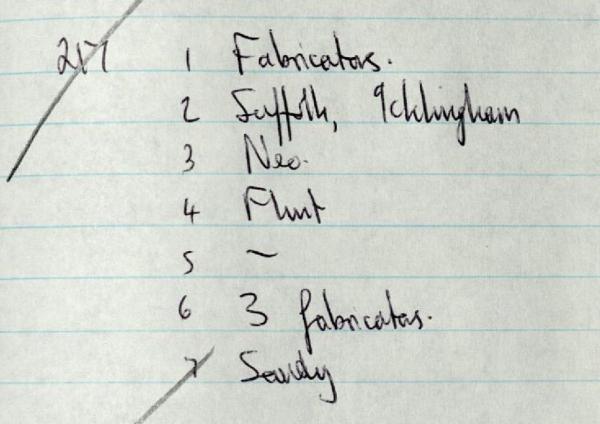 217 1 Fabricators.
2 Suffolk, Icklingham
3 Neo.
4 Flint
5 ~
6 3 fabricators.
7